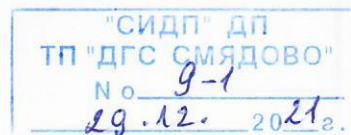 "СИДП" ДП
ТП "ДГС СМЯДОВО"
No 9-1
29.12. 2021г.